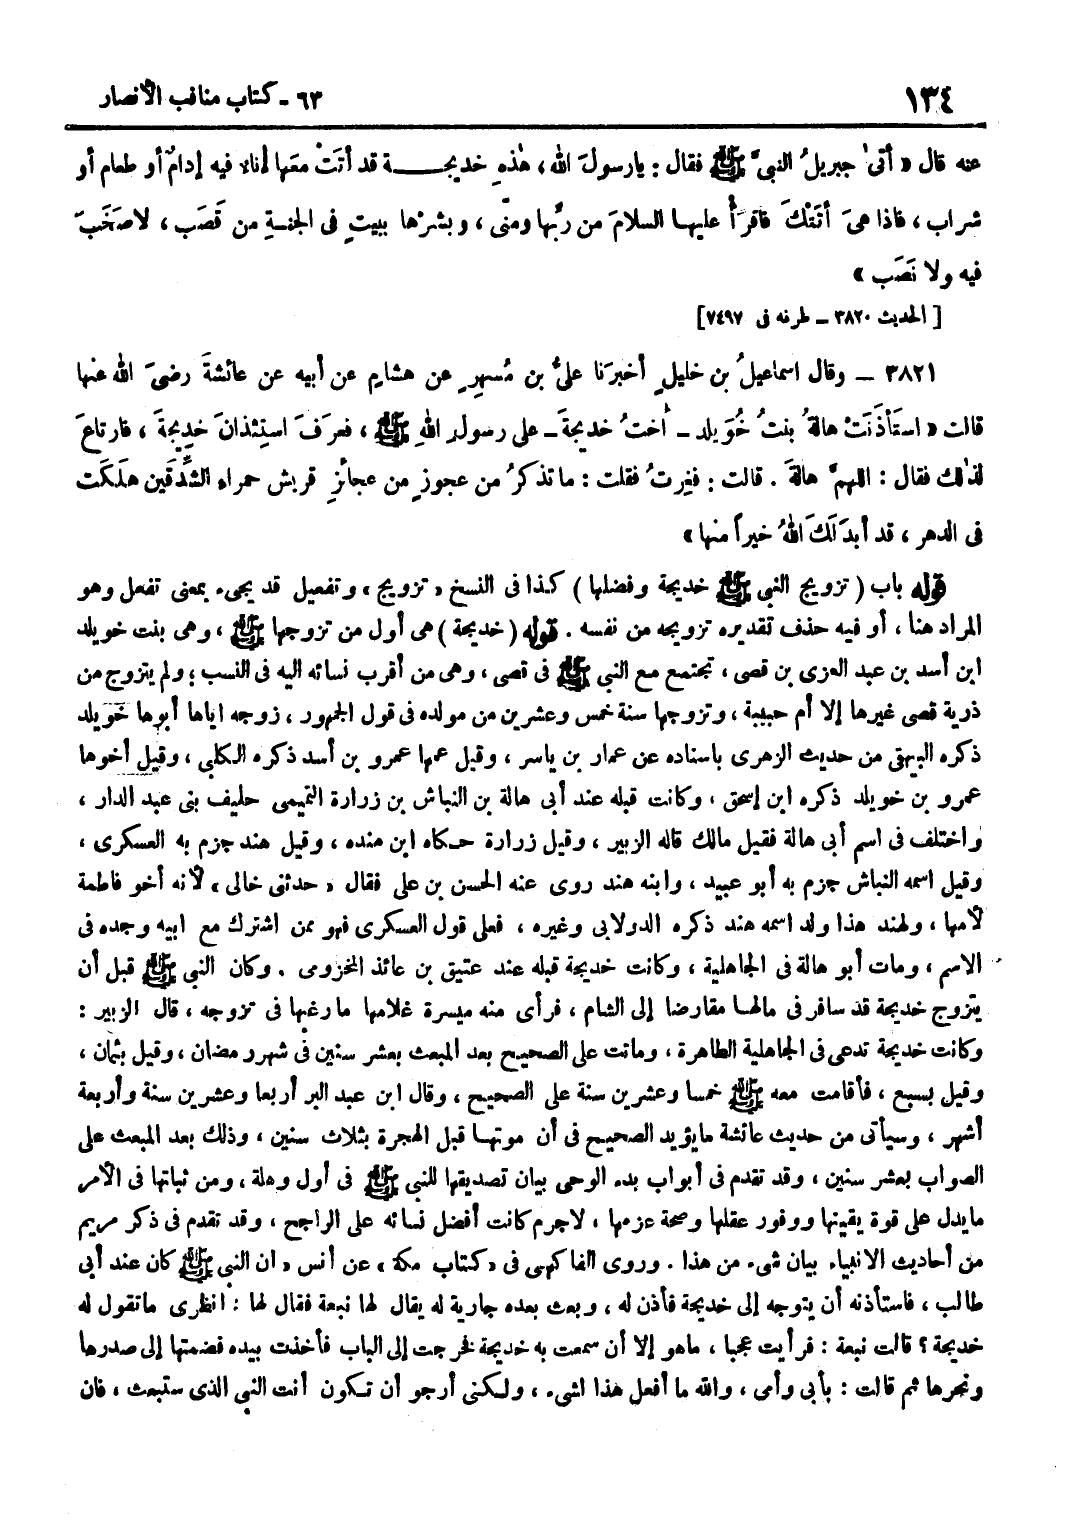 ١٣٤ ٦٣ - كتاب مناقب الأنصار
عنه قال « أتىٰ جبريلُ النبيَّ ﷺ فقال : يارسولَ الله ، هٰذهِ خديجة قد أتَتْ معَها إناء فيه إدامٌ أو طعام أو
شراب ، فاذا هىَ أتَتْكَ فاقرَأْ عليها السلامَ من ربِّها ومنّى ، وبشرْها ببيتٍ فى الجنةِ من قَصَب ، لاصَخَبَ
فيه ولا نَصَب »
[ الحديث ٣٨٢٠ – طرفه فى ٧٤٩٧]
٣٨٢١ – وقال اسماعيلُ بن خليلٍ أخبرَنا علىُّ بن مُسهِرٍ عن هشامٍ عن أبيه عن عائشةَ رضىَ الله عنها
قالت « استَأذَنَتْ هالةُ بنتُ خُوَيلد – أختُ خديجةَ – على رسولِ اللهِ ﷺ ، فعرَفَ استِئذانَ خديجةَ ، فارتاعَ
لذلك فقال : اللهمَّ هالةَ . قالت : فغِرتُ فقلت : ماتذكرُ من عجوزٍ من عجائزِ قريش حمراءِ الشِّدْقَين هلَكَت
فى الدهر ، قد أبدَلَكَ اللهُ خيراً منها »
قوله باب ( تزويج النبي ﷺ خديجة وفضلها ) كذا فى النسخ « تزويج » وتفعيل قد يجىء بمعنى تفعل وهو
المراد هنا ، أو فيه حذف تقديره تزويجه من نفسه . قوله ( خديجة ) هى أول من تزوجها ﷺ ، وهى بنت خويلد
ابن أسد بن عبد العزى بن قصى ، تجتمع مع النبي ﷺ فى قصى ، وهى من أقرب نسائه اليه فى النسب ؛ ولم يتزوج من
ذرية قصى غيرها إلا أم حبيبة ، وتزوجها سنة خمس وعشرين من مولده فى قول الجمهور ، زوجه اياها أبوها خويلد
ذكره البيهقى من حديث الزهرى باسناده عن عمار بن ياسر ، وقيل عمها عمرو بن أسد ذكره الكلبى ، وقيل أخوها
عمرو بن خويلد ذكره ابن إسحق ، وكانت قبله عند أبى هالة بن النباش بن زرارة التميمى حليف بنى عبد الدار ،
واختلف فى اسم أبى هالة فقيل مالك قاله الزبير ، وقيل زرارة حكاه ابن منده ، وقيل هند جزم به العسكرى ،
وقيل اسمه النباش جزم به أبو عبيد ، وابنه هند روى عنه الحسن بن على فقال « حدثنى خالى » لأنه أخو فاطمة
لأمها ، ولهند هذا ولد اسمه هند ذكره الدولابى وغيره ، فعلى قول العسكرى فهو ممن اشترك مع ابيه وجده فى
الاسم ، ومات أبو هالة فى الجاهلية ، وكانت خديجة قبله عند عتيق بن عائذ المخزومى . وكان النبي ﷺ قبل أن
يتزوج خديجة قد سافر فى مالها مقارضا إلى الشام ، فرأى منه ميسرة غلامها ما رغبها فى تزوجه ، قال الزبير :
وكانت خديجة تدعى فى الجاهلية الطاهرة ، وماتت على الصحيح بعد المبعث بعشر سنين فى شهر رمضان ، وقيل بثمان ،
وقيل بسبع ، فأقامت معه ﷺ خمسا وعشرين سنة على الصحيح ، وقال ابن عبد البر أربعا وعشرين سنة وأربعة
أشهر ، وسيأتى من حديث عائشة مايؤيد الصحيح فى أن موتها قبل الهجرة بثلاث سنين ، وذلك بعد المبعث على
الصواب بعشر سنين ، وقد تقدم فى أبواب بدء الوحى بيان تصديقها للنبي ﷺ فى أول وهلة ، ومن ثباتها فى الأمر
مايدل على قوة يقينها ووفور عقلها وصحة عزمها ، لاجرم كانت أفضل نسائه على الراجح ، وقد تقدم فى ذكر مريم
من أحاديث الانبياء بيان شىء من هذا . وروى الفاكهى فى « كتاب مكة » عن أنس « ان النبي ﷺ كان عند أبى
طالب ، فاستأذنه أن يتوجه إلى خديجة فأذن له ، وبعث بعده جارية له يقال لها نبعة فقال لها : انظرى ماتقول له
خديجة ؟ قالت نبعة : فرأيت عجبا ، ماهو إلا أن سمعت به خديجة فخرجت إلى الباب فأخذت بيده فضمتها إلى صدرها
ونحرها ثم قالت : بأبى وأمى ، والله ما أفعل هذا لشىء ، ولكنى أرجو أن تكون أنت النبي الذى ستبعث ، فان